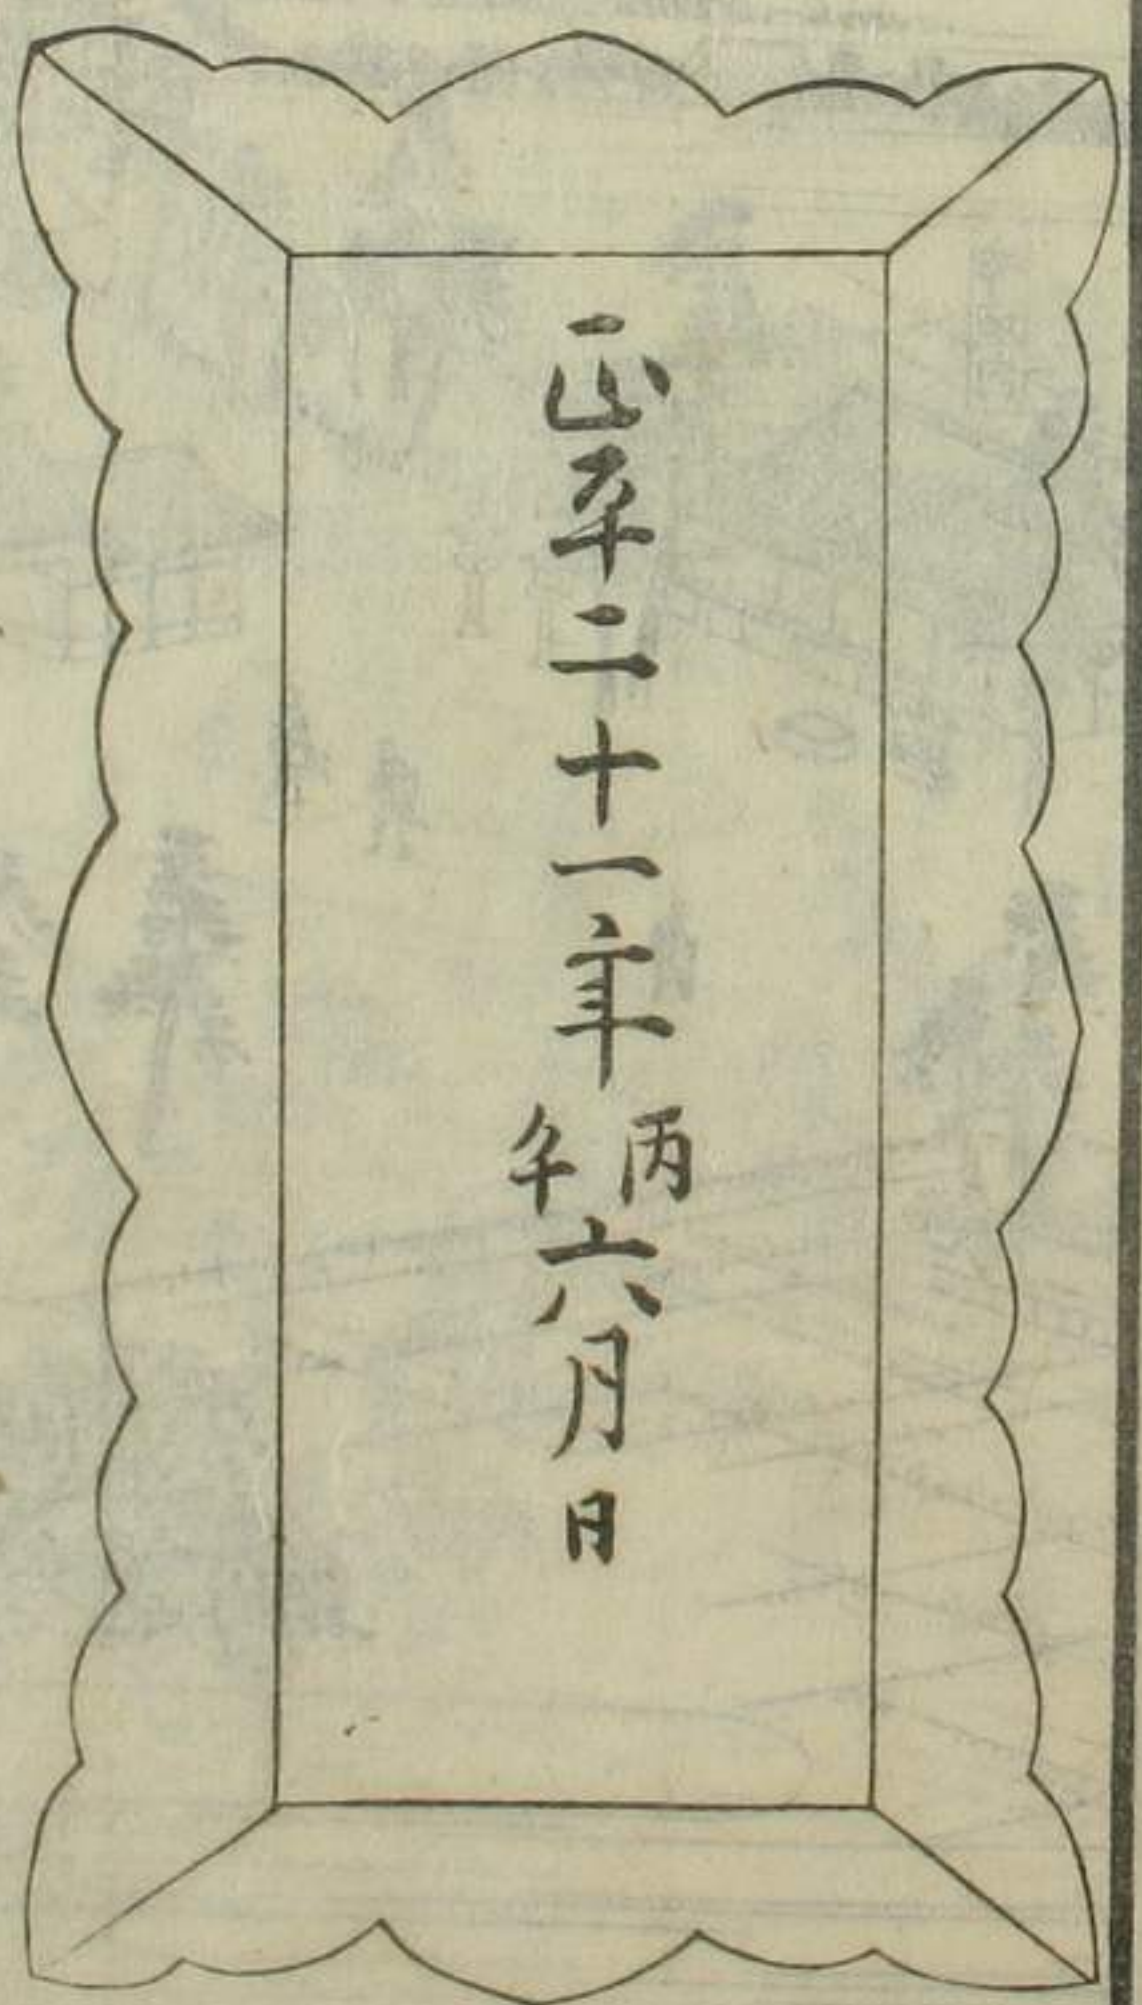 正平二十一年丙午六月日